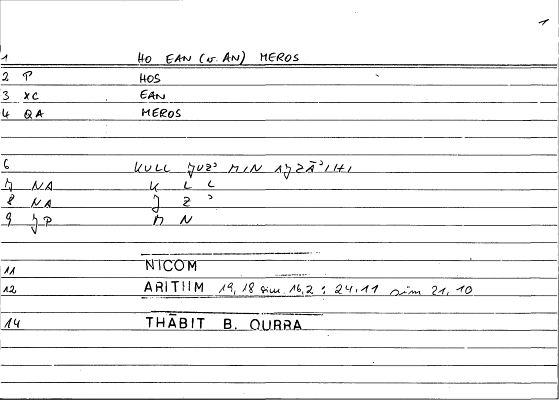 1
1 HO EAN (v. AN) MEROS
2 P HOS
3 XC EAN
4 QA MEROS
6 KULL ǦUZʾ MIN AǦZĀʾIHI
7 NA K L L
8 NA Ǧ Z ʾ
9 ǦP M N
11 NICOM
12 ARITIIM 19, 18 sim. 16,2 : 24,11 sim 21, 10
14 THĀBIT B. QURRA